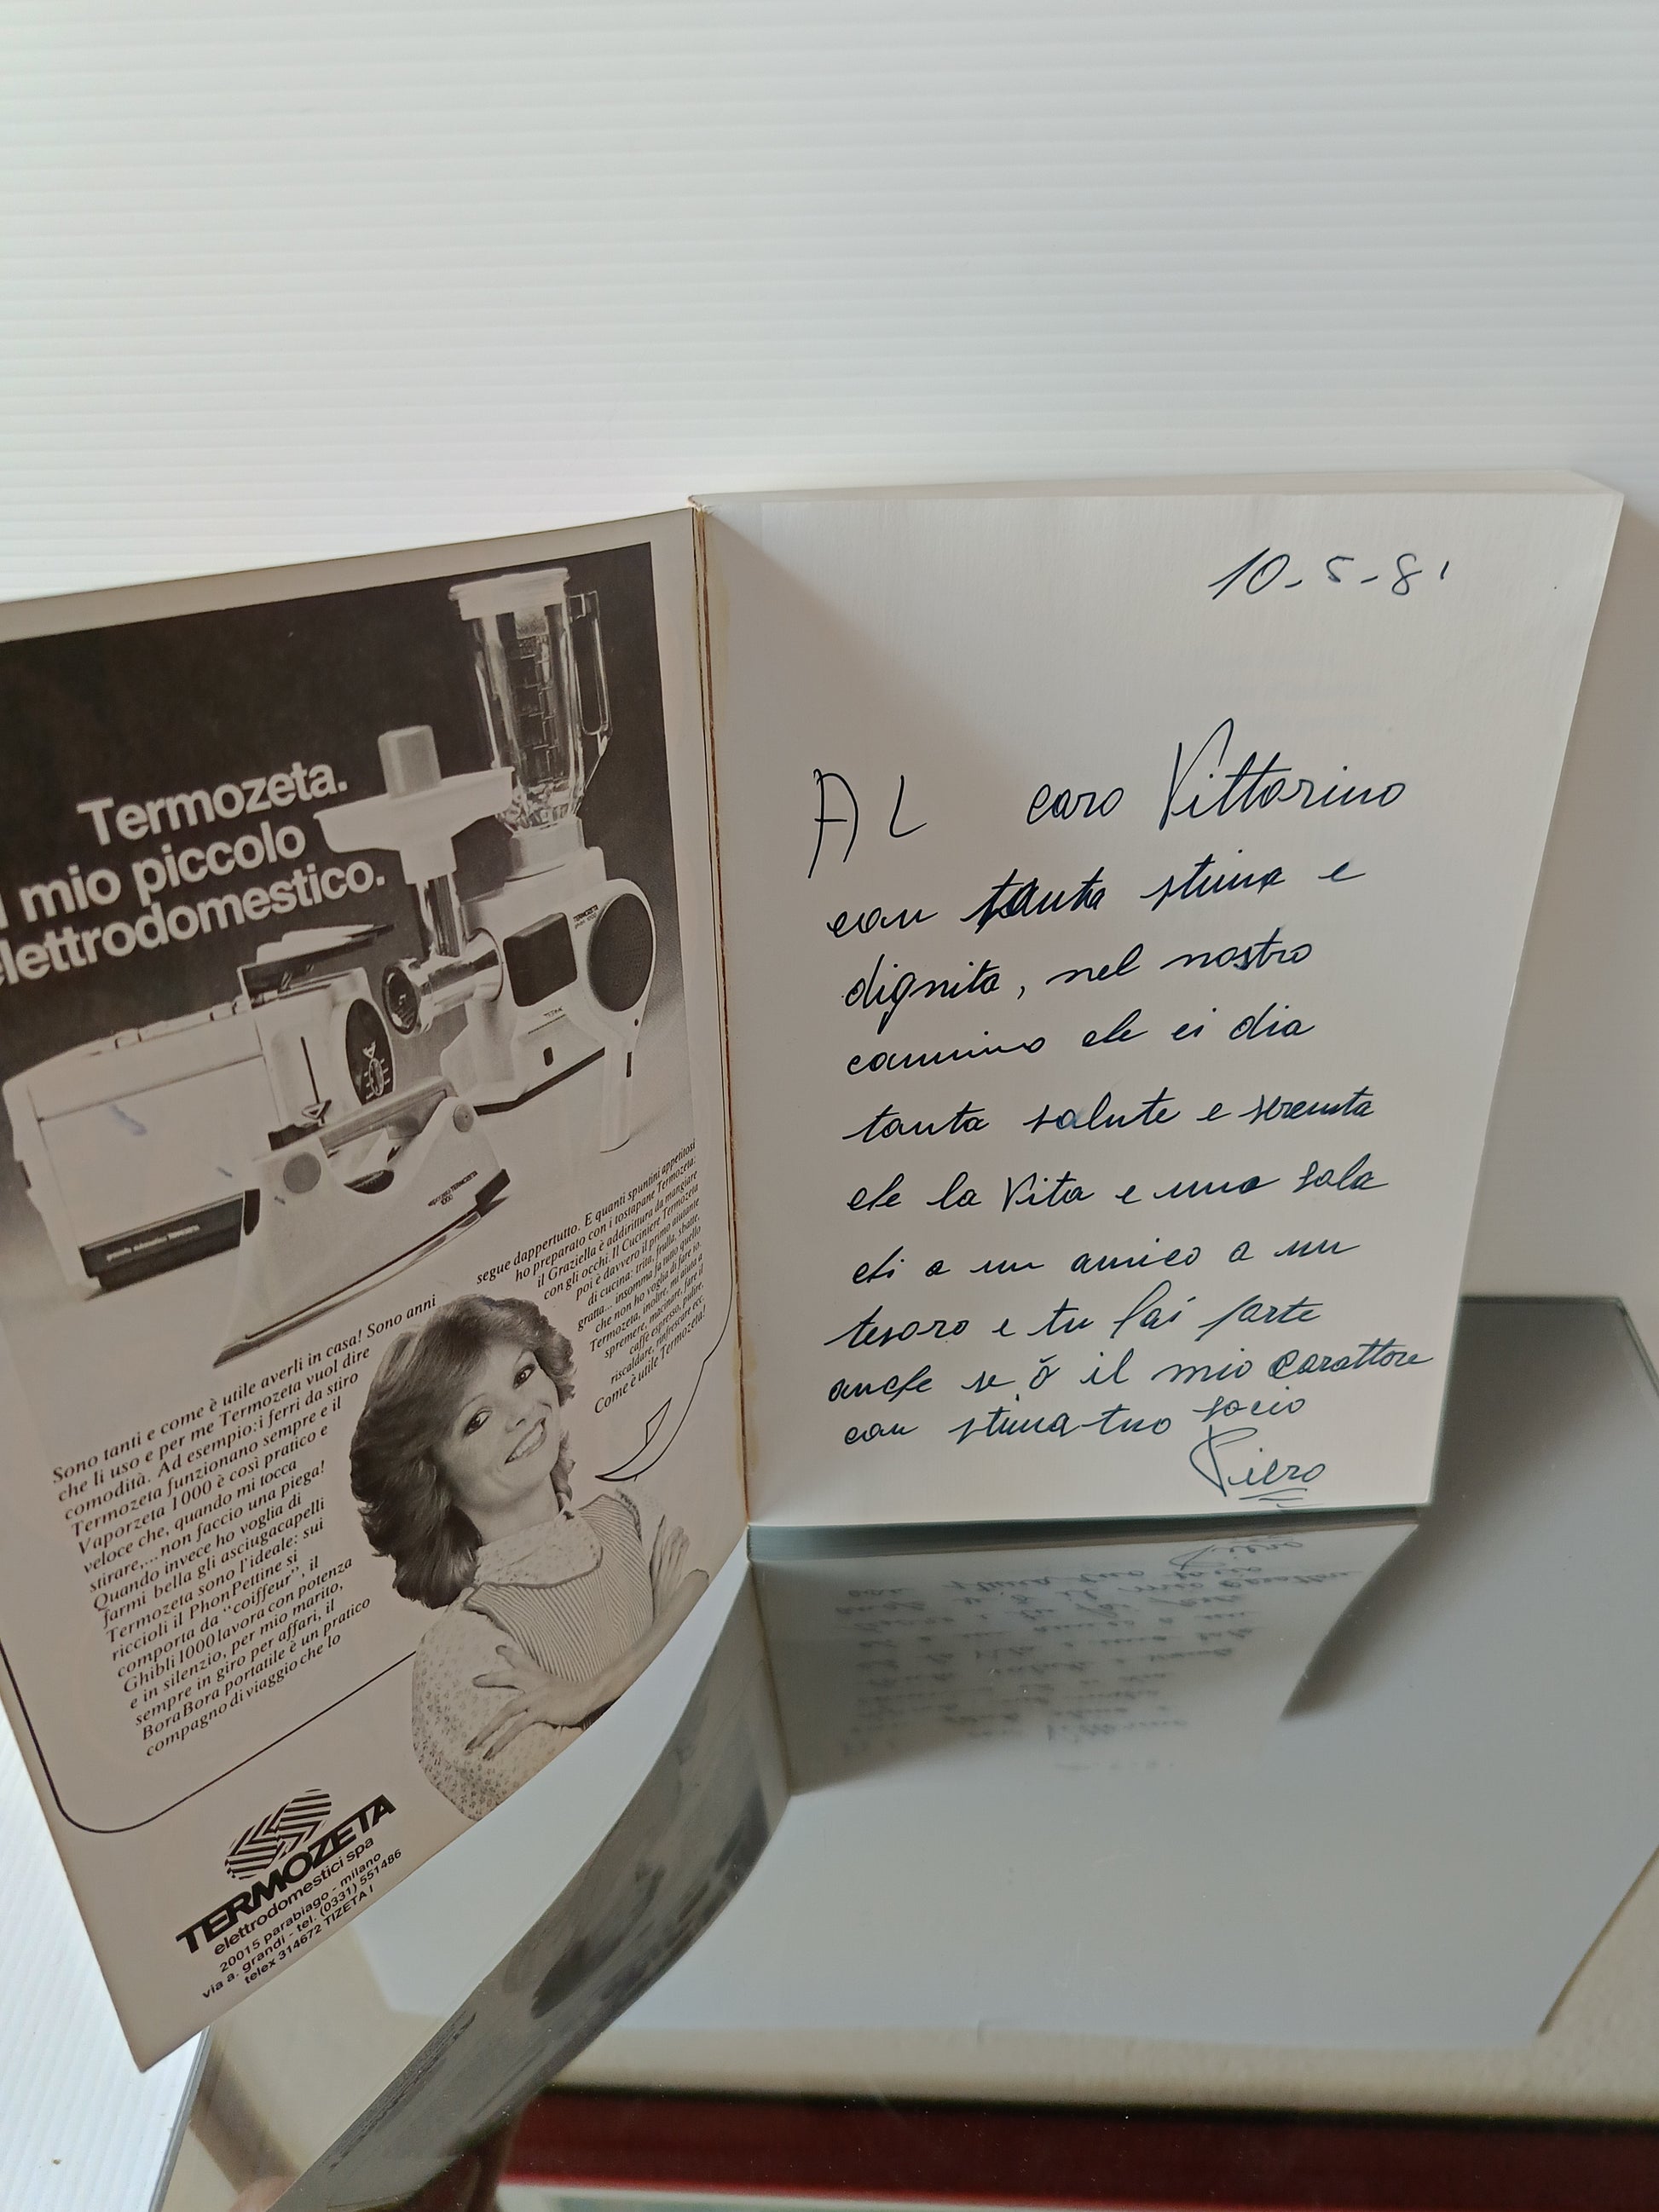 Termozeta.
l mio piccolo
elettrodomestico.
Sono tanti e come è utile averli in casa! Sono anni
che li uso e per me Termozeta vuol dire
comodità. Ad esempio: i ferri da stiro
Termozeta funzionano sempre e il
Vaporzeta 1000 è così pratico e
veloce che, quando mi tocca
stirare,... non faccio una piega!
Quando invece ho voglia di
farmi bella gli asciugacapelli
Termozeta sono l'ideale: sui
riccioli il PhonPettine si
comporta da "coiffeur", il
Ghibli 1000 lavora con potenza
e in silenzio, per mio marito,
sempre in giro per affari, il
BoraBora portatile è un pratico
compagno di viaggio che lo
segue dappertutto. E quanti spuntini appetitosi
ho preparato con i tostapane Termozeta:
il Graziella è addirittura da mangiare
con gli occhi. Il Cuciniere Termozeta
poi è davvero il primo aiutante
di cucina: trita, frulla, sbatte,
gratta... insomma fa tutto quello
che non ho voglia di fare io.
Termozeta, inoltre, mi aiuta a
spremere, macinare, fare il
caffè espresso, pulire,
riscaldare, rinfrescare ecc.
Come è utile Termozeta!
TERMOZETA
elettrodomestici spa
20015 parabiago - milano
via a. grandi - tel. (0331) 551486
telex 314672 TIZETA I
10-5-81
AL caro Vittorino
con tanta stima e
dignita, nel nostro
cammino che ci dia
tanta salute e serenita
che la Vita e una sola
chi a un amico a un
tesoro e tu fai parte
anche se ò il mio Carattore
con stima tuo socio
Piero